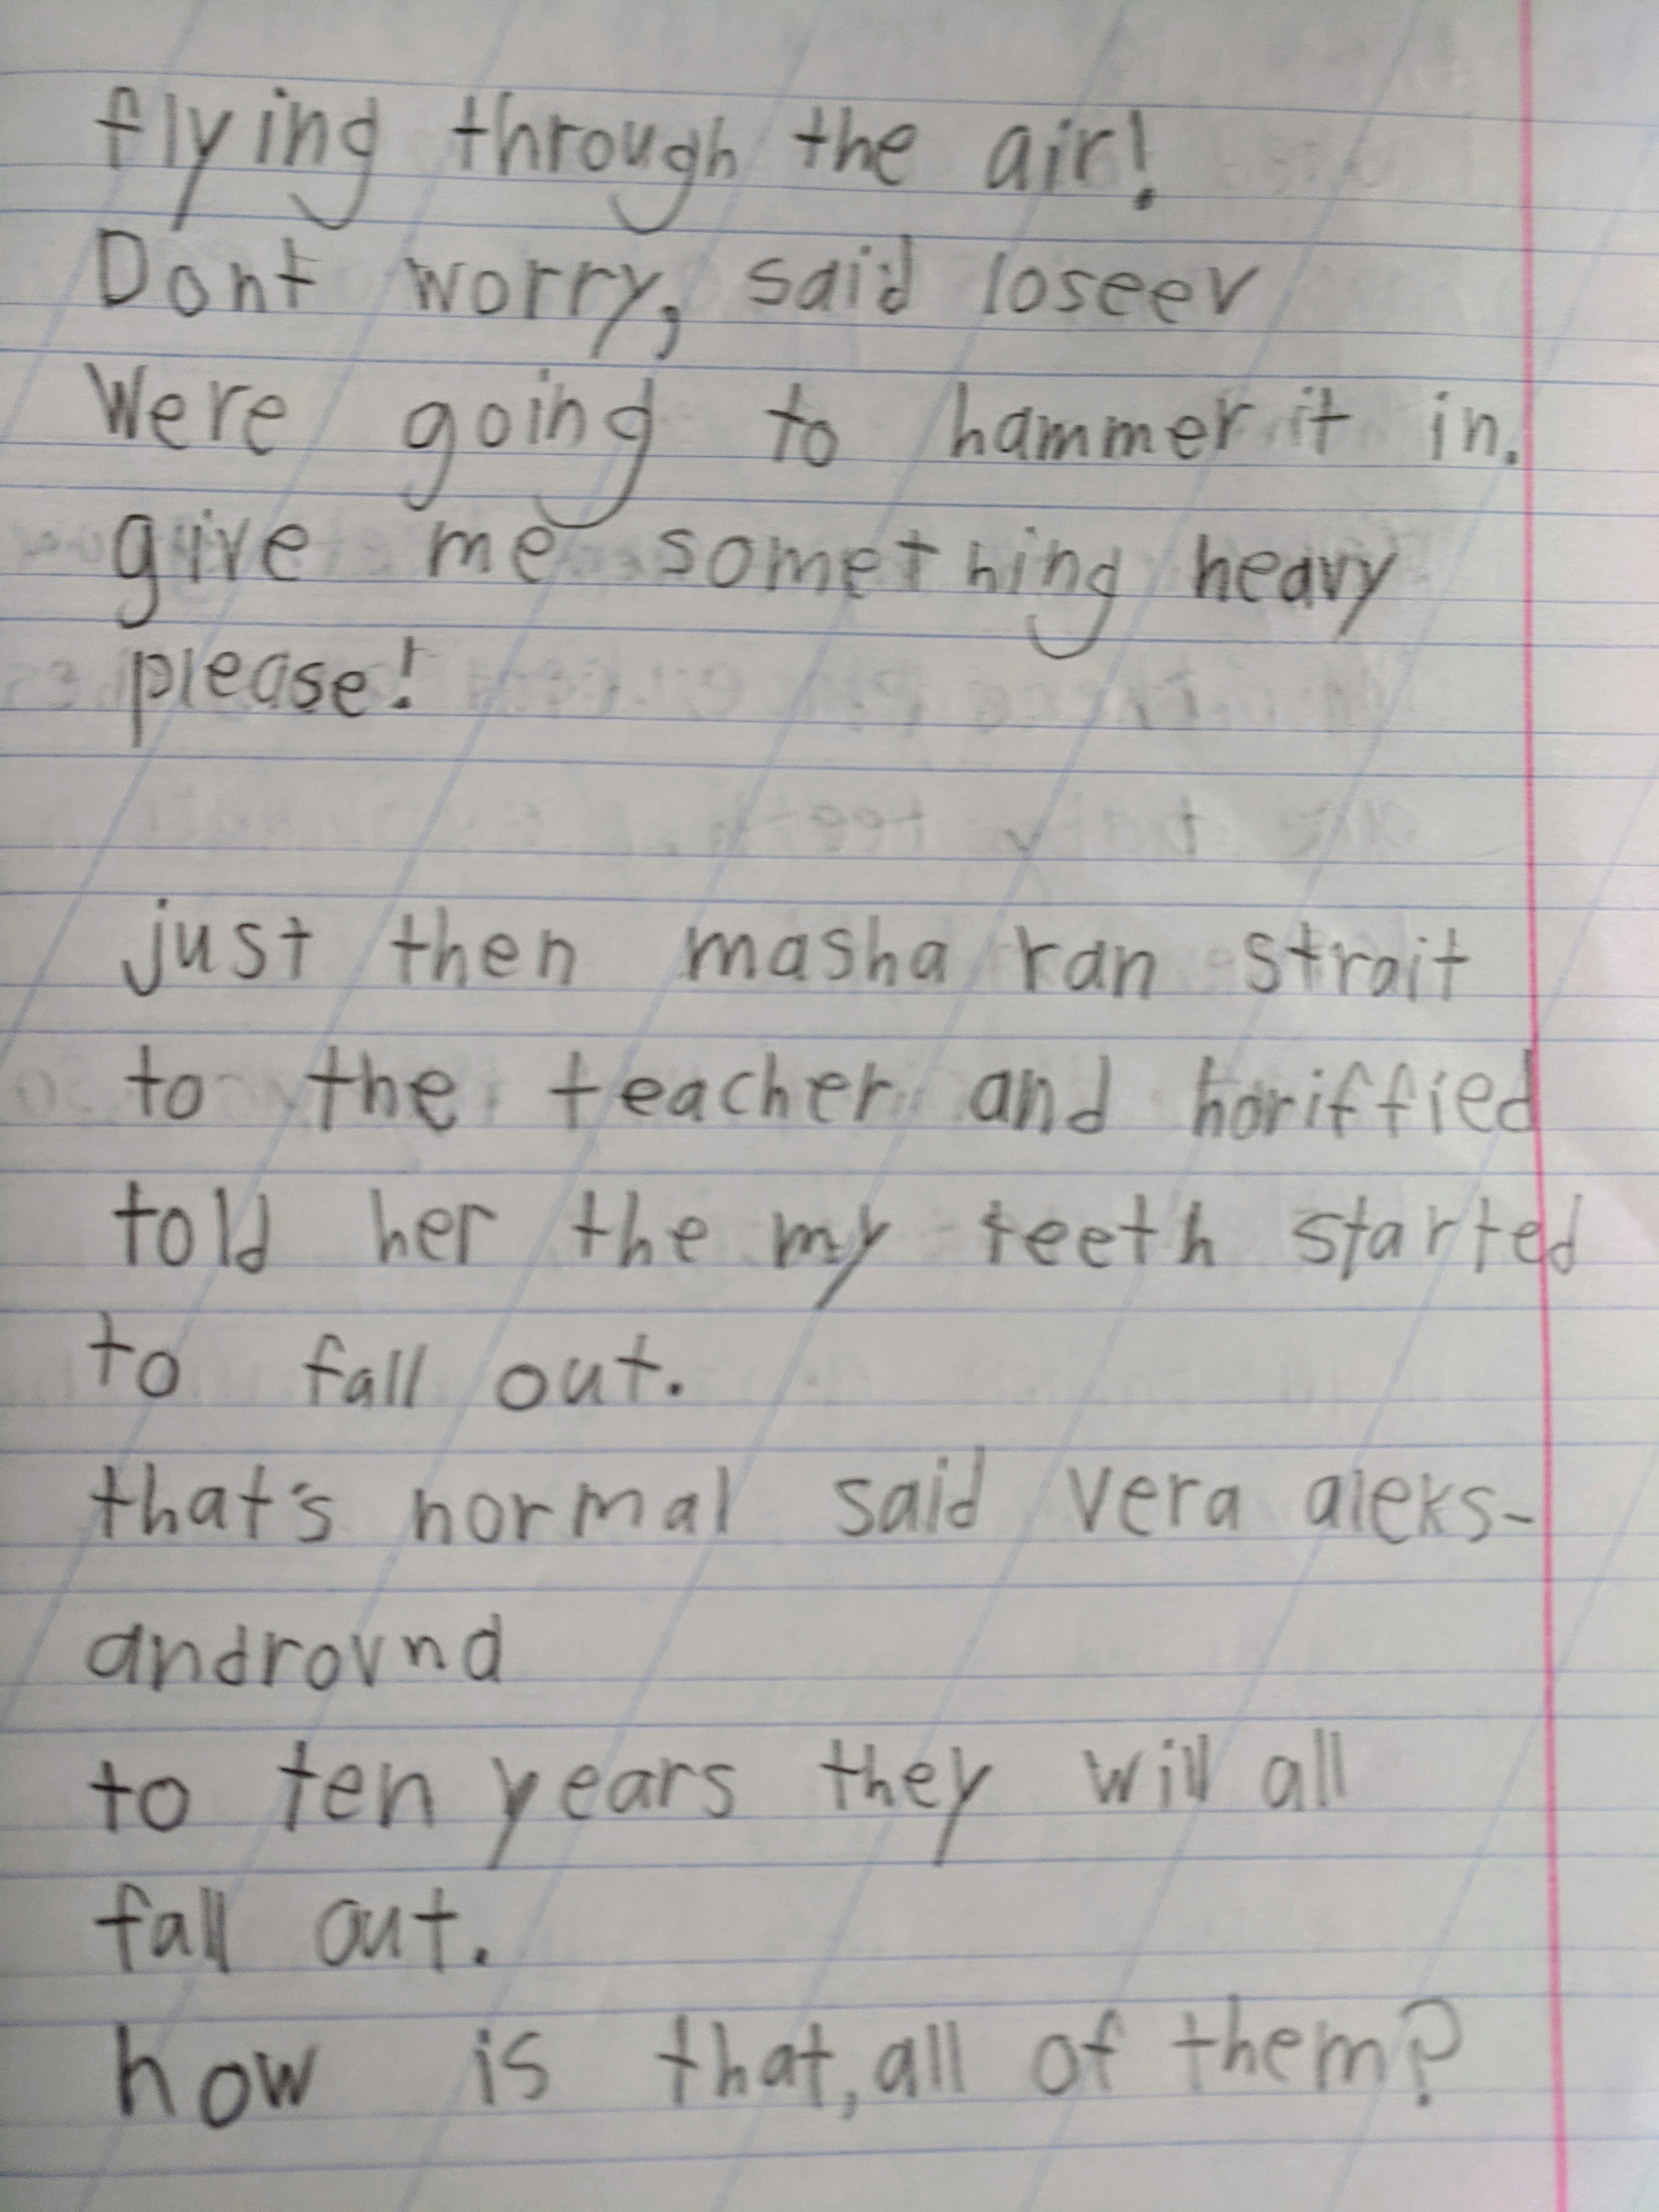 flying through the air!
Dont worry, said loseev
Were going to hammer it in.
give me something heavy
please!
just then masha ran strait
to the teacher and horiffied
told her the my teeth started
to fall out.
that's normal said vera aleks-
androvna
to ten years they will all
fall out.
how is that, all of them?